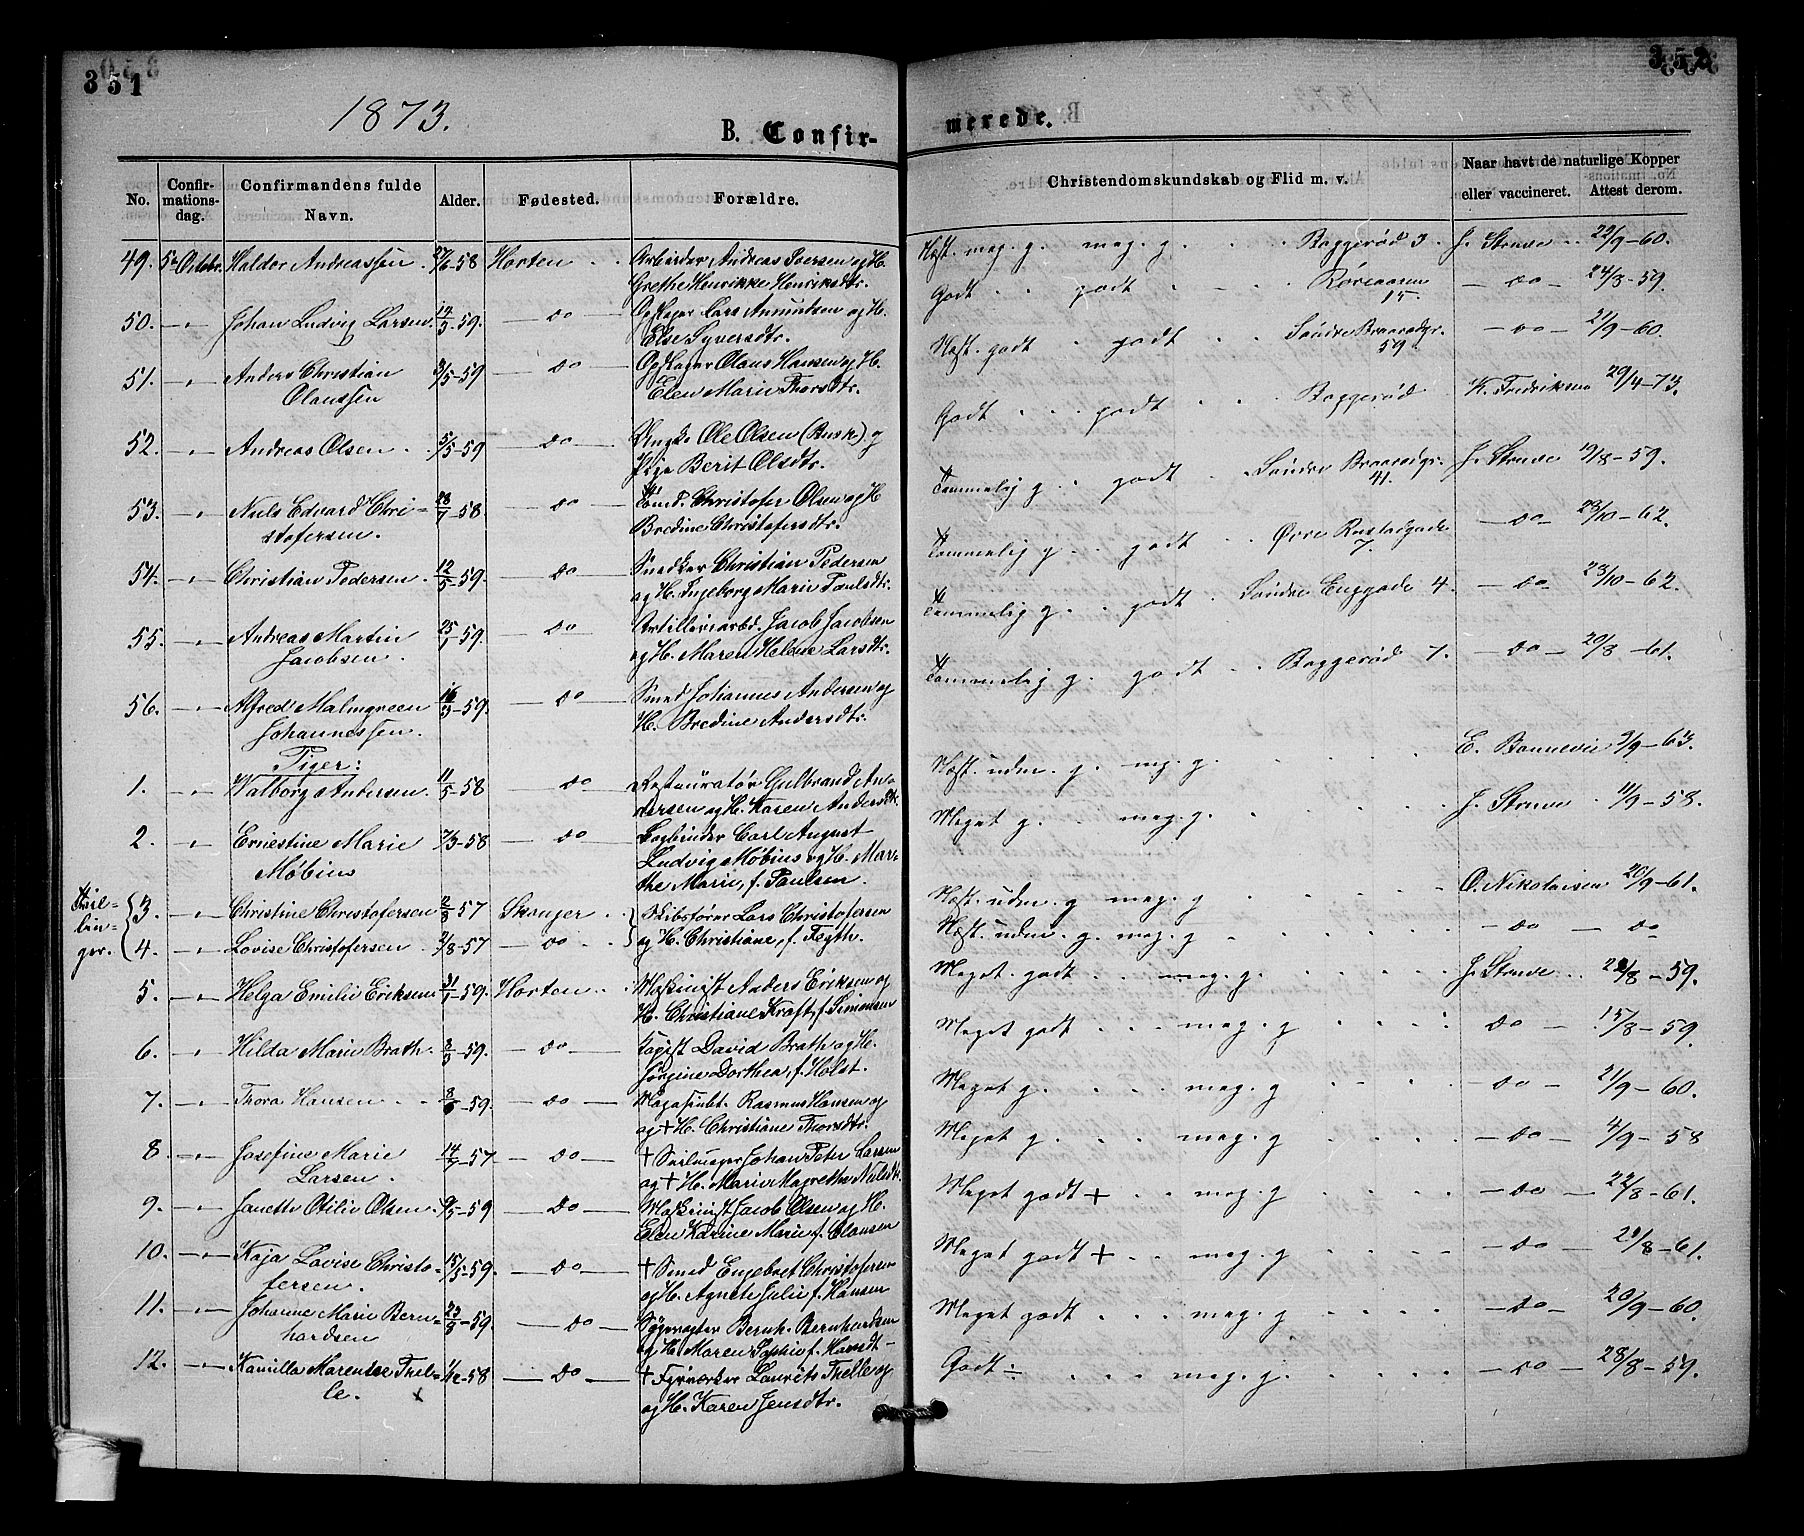 351
352
1873.
B. Confir-
merede.
No.
Confir-
mations-
dag.
Confirmandens fulde
Navn.
Alder.
Fødested.
Forældre.
Christendomskundskab og Flid m. v.
Naar havt de naturlige Kopper
eller vaccineret.
Attest derom.
49. 5te Octobr. Haldor Andreassen 27/6-58 Horten Arbeider Andreas Iversen og H.
Grethe Henrikke Henriksdtr.
Næst. meg. g. meg. g. Baggerød 3. J. Struve 22/9-60.
50. Johan Ludvig Larsen 14/3-59. do Oplager Lars Amundsen og H.
Else Syversdtr.
Godt godt Røreaasen do 24/8-59.
15.
51. Anders Christian 3/5-59 do Oplager Olaus Hansen og H.
Olaussen Elen Marie Thorsdtr.
Næst. godt godt Søndre Braarudgr. do 21/9-60.
59.
52. Andreas Olsen 5/5-59 do Ungk. Ole Olsen (Busk) og
Pige Berit Olsdtr.
Godt godt Baggerød K. Fredriksen 29/4-73.
53. Niels Edvard Chri- 28/7-58. do Tømd. Christofer Olsen og H
stofersen. Bredine Christofersdtr.
Temmelig g. godt Søndre Braarudgr. J. Struve 19/8-59.
41.
54. Christian Pedersen 12/5-59. do Snedker Christian Pedersen
og H. Ingeborg Marie Paulsdtr.
Temmelig g. godt Øvre Rustadgade do 23/10-62.
7.
55. Andreas Martin 25/1-59. do Artilleriearbd. Jacob Jacobsen
Jacobsen. og H. Maren Helene Larsdtr.
Temmelig g. godt Søndre Enggade 4. do 23/10-62.
56. Alfred Malmgreen 16/3-59. do Smed Johannes Andersen og
Johannessen. H. Bredine Andersdtr.
Temmelig g. godt Baggerød 7. do 20/8-61.
Piger:
1. Walborg Andersen. 11/5-58 do Restauratør Gulbrand An-
dersen og H. Karen Andersdtr.
Næst. udm. g. mg. g. E. Bonnevie 9/9-63.
2. Ernestine Marie 7/3-58 do Bogbinder Carl August
Møbius Ludvig Møbius og H. Mar-
the Marie, f. Paulsen.
Meget g. meg. g. J. Struve 11/9-58.
Tvil-
lin-
ger.
3. Christine Christofersen 2/8-57 Skånger Skibsfører Lars Christofersen
Næst. udm. g meg. g O. Nikolaisen 20/9-61.
4. Lovise Christofersen 2/8-57 do og H. Christiane, f. Feyth.
Næst. udm. g. meg. g do do
5. Helga Emilie Eriksen 31/1-59. Horten Maskinist Anders Eriksen og
H. Christiane Kraft, f. Simonsen
Meget godt meg. g. J. Struve 22/8-59.
6. Hilda Marie Brath 2/3-59. do Kopist David Brath og H.
Jørgine Dorthea, f. Holst.
Meget godt meg. g do 15/8-59.
7. Thora Hansen 8/6-59. do Magasinbt. Rasmus Hansen og
og + H. Christiane Thorsdtr.
Meget g. meg. g do 21/9-60.
8. Josefine Marie 14/9-57. do + Seilmager Johan Peter Larsen
Larsen. og + H. Marie Magrethe Nielsdtr.
Meget g. meg. g do 4/9-58
9. Janette Otilie Olsen 9/5-59 do Maskinist Jacob Olsen og H.
Elen Karine Marie f. Clausen
Meget godt + meg. g do 22/8-61.
10. Kaja Lovise Christo- 15/5-59. do + Smed Engebret Christofersen
fersen. og H. Agnete Julie f. Hansen
Meget godt + meg. g do 21/8-61.
11. Johanne Marie Bern- 23/8-59. do Søgevagter Bernh. Bernhardsen
hardsen og H. Maren Sophie f. Hansdt-
Meget godt meg. g do 20/9-60.
12. Kamilla Marensee Thel- 1/12-58 do + Fyrværker Laurits Thelle og
le. og H. Karen Jensdtr.
Godt meg. g. do 28/8-59.